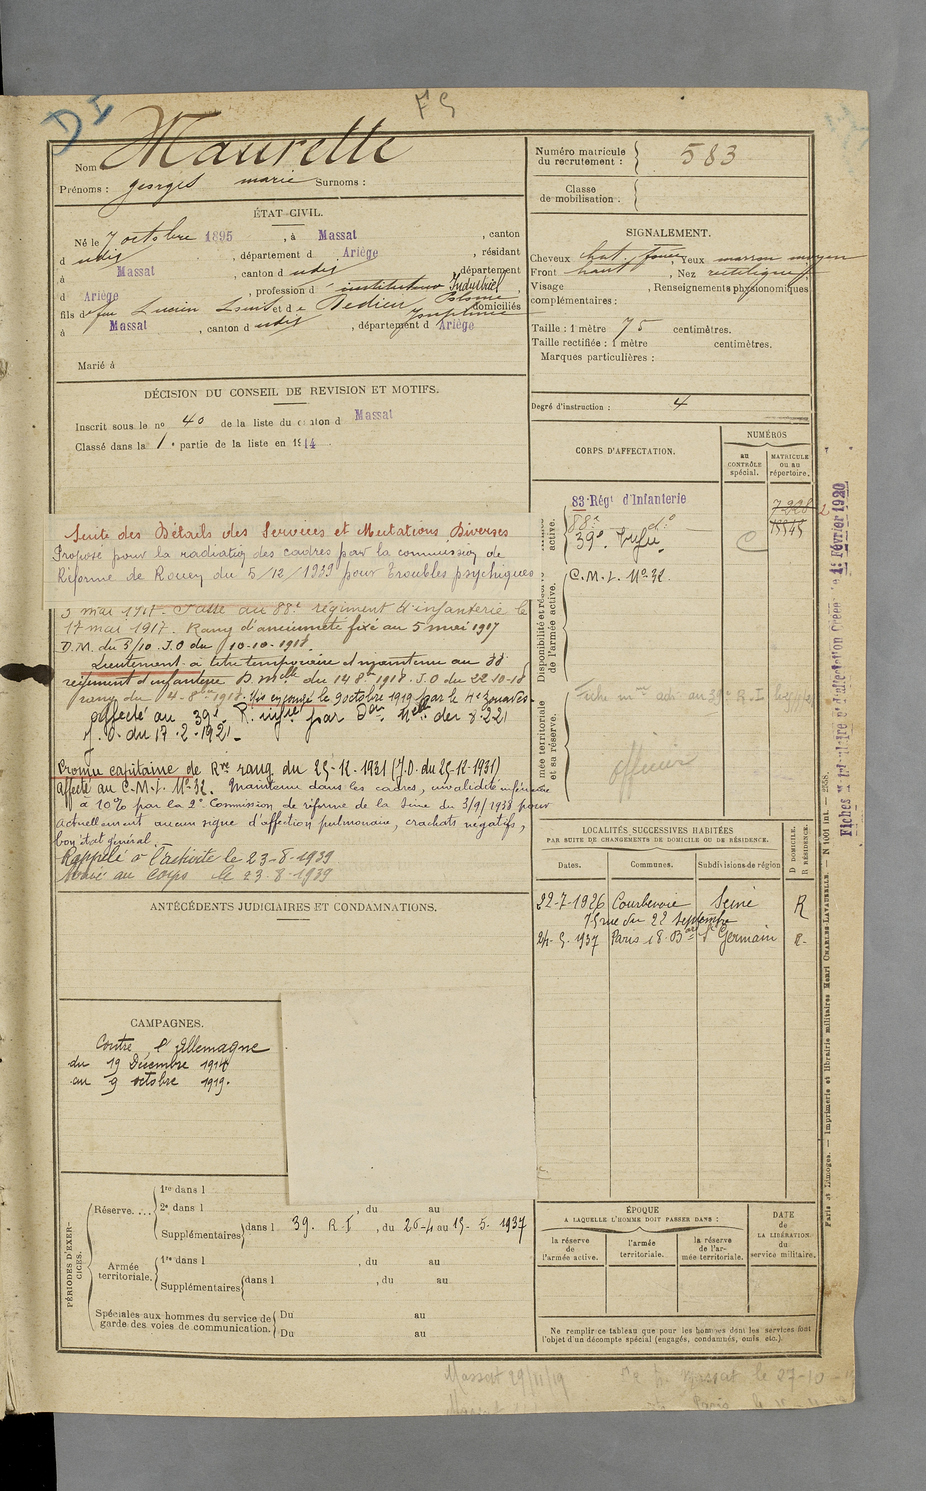 D I
F G
Nom Maurette
Prénoms : georges marie Surnoms :
Numéro matricule du recrutement : 583
Classe de mobilisation :
ÉTAT CIVIL.
Né le 7 octobre 1895, à Massat, canton
d udit, département d Ariège, résidant
à Massat, canton d udit, département
d Ariège, profession d instituteur Industriel
fils d feu Lucien Louis et d e Dedieu domiciliés
à Massat, canton d udit, département d Ariège
Marié à
SIGNALEMENT.
Cheveux chat. foncé, Yeux marron moyen
Front haut, Nez rectiligne
Visage , Renseignements physionomiques
complémentaires :
Taille : 1 mètre 75 centimètres.
Taille rectifiée : 1 mètre centimètres.
Marques particulières :
Degré d'instruction : 4
DÉCISION DU CONSEIL DE REVISION ET MOTIFS.
Inscrit sous le nº 40 de la liste du canton d Massat
Classé dans la 1e partie de la liste en 1914
Suite des Détails des Services et Mutations Diverses
Proposé pour la radiation des cadres par la commission de
Réforme de Rouen du 5/12/1939 pour troubles psychiques
5 mai 1917. Passé au 88e régiment d'infanterie le
17 mai 1917. Rang d'ancienneté fixé au 5 mai 1917
D.M. du 3/10 J.O du 10-10-1918.
Lieutenant à titre temporaire et maintenu au 88
régiment d'infanterie D. Mlle du 14 8bre 1918. J.O du 22 10-18
rang du 4-8-1918. Mis en congé le 9 octobre 1919 par le 4e Zouaves.
affecté au 39e R. infie par Don Mlle du 8 2 21
J.O. du 17-2-1921-
Promu capitaine de Rve rang du 25-12-1931 (J.O. du 25-12-1931)
affecté au C.M.I. No 32. Maintenu dans les cadres, invalidité inférieure
à 10% par la 2e Commission de réforme de la Seine du 3/9/1938 pour
actuellement aucun signe d'affection pulmonaire, crachats négatifs,
bon état général.
Rappelé à l'activité le 23-8-1939
Arrivé au Corps le 23-8-1939
CORPS D'AFFECTATION.
NUMÉROS
au CONTRÔLE spécial.
MATRICULE ou au répertoire.
active.
83 Régt d'Infanterie 7228
88e do 15545
39e Infie
Disponibilité et réserve de l'armée active.
C.M.I. No 32
mée territoriale et sa réserve.
officier
Fiches 1er Février 1920
LOCALITÉS SUCCESSIVES HABITÉES
PAR SUITE DE CHANGEMENTS DE DOMICILE OU DE RÉSIDENCE.
D DOMICILE. R RÉSIDENCE.
Dates. Communes. Subdivisions de région
22-7-1926 Courbevoie Seine R
75 rue du 22 Septembre
24-5-1937 Paris 18 Bard St Germain R
ANTÉCÉDENTS JUDICIAIRES ET CONDAMNATIONS.
CAMPAGNES.
Contre l'Allemagne
du 19 Décembre 1914
au 9 octobre 1919.
PÉRIODES D'EXERCICES.
Réserve....
1re dans l
2e dans l , du au
Supplémentaires dans l 39. R.I , du 26-4 au 15-5-1937
Armée territoriale.
1re dans l , du au
Supplémentaires dans l , du au
Spéciales aux hommes du service de garde des voies de communication.
Du au
Du au
ÉPOQUE
A LAQUELLE L'HOMME DOIT PASSER DANS :
la réserve de l'armée active.
l'armée territoriale.
la réserve de l'armée territoriale.
DATE de LA LIBÉRATION du service militaire.
Ne remplir ce tableau que pour les hommes dont les services font
l'objet d'un décompte spécial (engagés, condamnés, omis etc.).
Paris et Limoges. — Imprimerie et librairie militaires Henri CHARLES-LAVAUZELLE. — N 1001 int — 2558.
Massat 29/11/19
Massat le 27-10
Paris